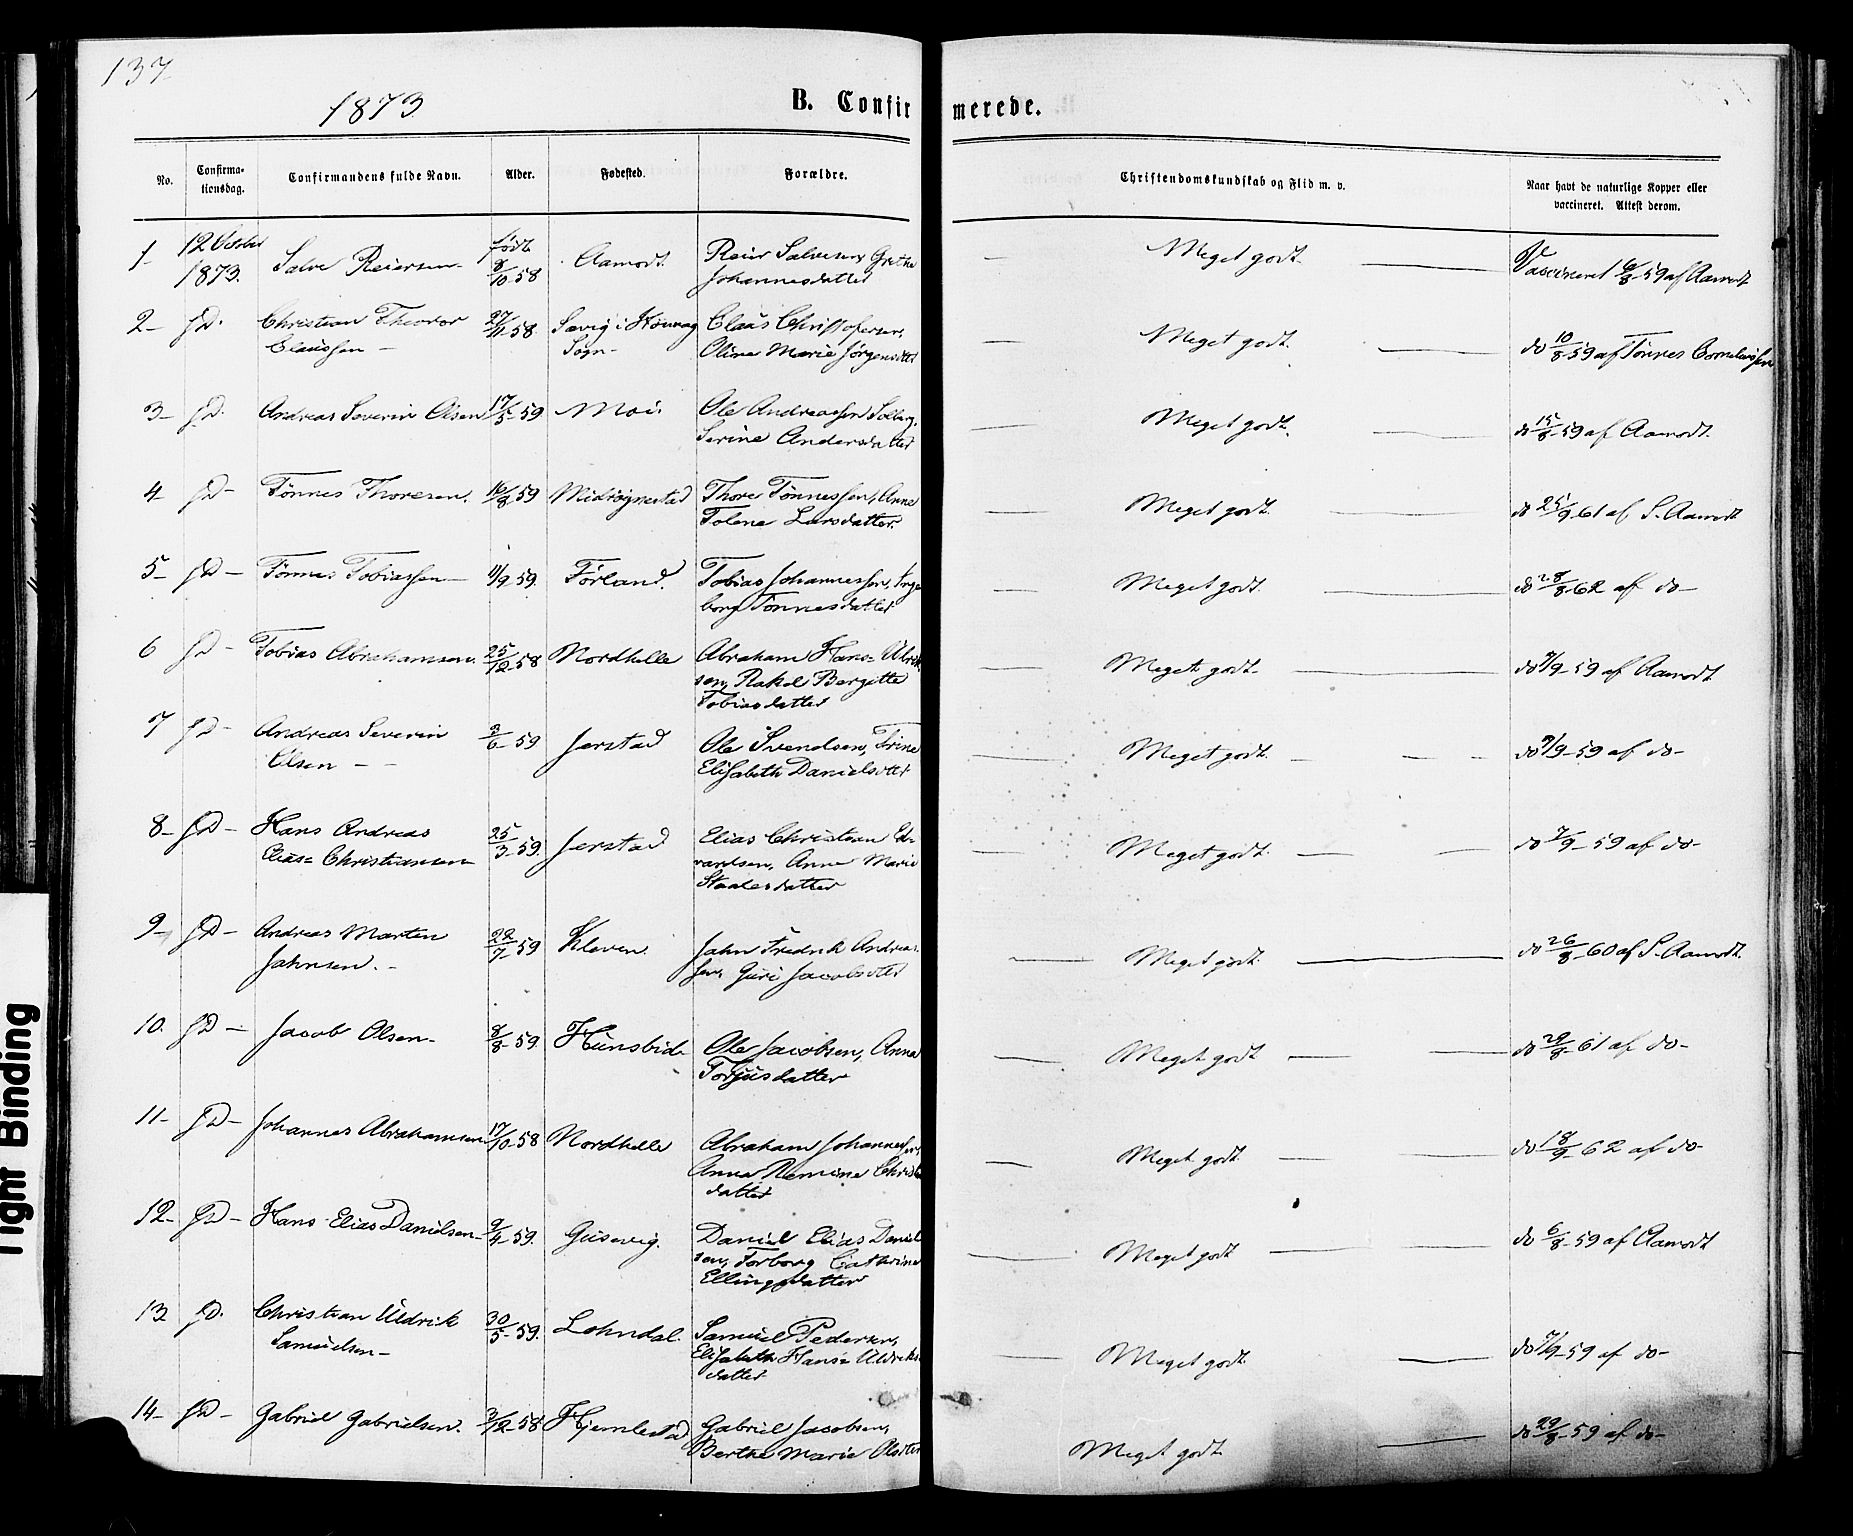 137
1873
B. Confirmerede.
No. Confirmationsdag. Confirmandens fulde Navn. Alder. Fødested. Forældre. Christendomskundskab og Flid m. v. Naar havt de naturlige Kopper eller vaccineret. Attest derom.
1- 12 1873. Salve Reiersen- født 8/10 58 Aamodt. Reier Salvesen, Grethe Johannesdatter — Meget godt. — Vaccineret 6/8-59 af Aamodt
2- D. Christian Theodor Claussen - 27/11 58. Sævig i Sogn- Claus Christofersen, Oline Marie Jørgensdtter — Meget godt. — do 10/8-59 af Tønnes Corneliussen
3- D. Andreas Severin Olsen 17/5-59 Moi. Ole Andreassen Solberg, Serine Andersdatter — Meget godt. — do 15/8-59 af Aamodt.
4- D- Tønnes Thoresen. 16/8 59 Midrøgnestad Thore Tønnessen, Anne Tolene Larsdatter. — Meget godt. — do 25/9-61 af S. Aamodt
5- D- Tønnes Tobiassen- 11/9 59. Førland. Tobias Johannessen, Ingeborg Tønnesdatter — Meget godt. — do 28/8-62 af do-
6 D- Tobias Abrahamsen. 25/12 58 Nordhelle Abraham Hans= Ulriksen, Rakel Bergitte Tobiasdatter — Meget godt- — do 7/9-59 af Aamodt
7 D- Andreas Severin Olsen - - 3/6-59 Jerstad Ole Svendsen, Trine Elisabeth Danielsdtter — Meget godt. - — do 7/9-59 af do-
8- D- Hans Andreas Elias= Christiansen 25/3-59. Jerstad Elias Christian Edvardsen, Anne Marie Staalesdatter — Meget godt. — do 7/9-59 af do-
9- D- Andreas Marten Jahnsen. - 22/7-59 Kleven. Jahn Fredrik Andreassen, Guri Jacobsdtter — Meget godt. — do 26/8-60 af S. Aamodt.
10. D- Jacob Olsen- 8/8-59. Hunsbide Ole Jacobsen, Anna Torjusdatter — Meget godt — do 29/8-61 af do-
11- D- Johannes Abrahamsen 17/10-58 Nordhelle Abraham Johannessen, Anna Remine datter — Meget godt. — do 18/9-62 af do-
12- D- Hans Elias Danielsen- 9/4-59. Gusevig. Daniel Elias Danielsen, Torborg Cathrine Ellingsdatter — Meget godt — do 6/8-59 af Aamodt
13 D. Christian Uldrik Samuelsen- 30/5-59. Lohndal. Samuel Pedersen, Elisabeth Hans= Uldriksdatter — Meget godt. — do 7/9-59 af do-
14- D- Gabriel Gabrielsen. 3/12-58 Hjemlestad Gabriel Jacobsen, Berthe Marie Olsdtter Meget godt. — do 29/8-59 af do-
Tight Binding